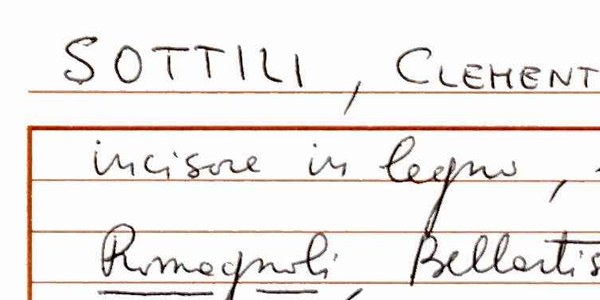 SOTTILI, CLEMENT
incisore in legno,
Romagnoli, Bellartis